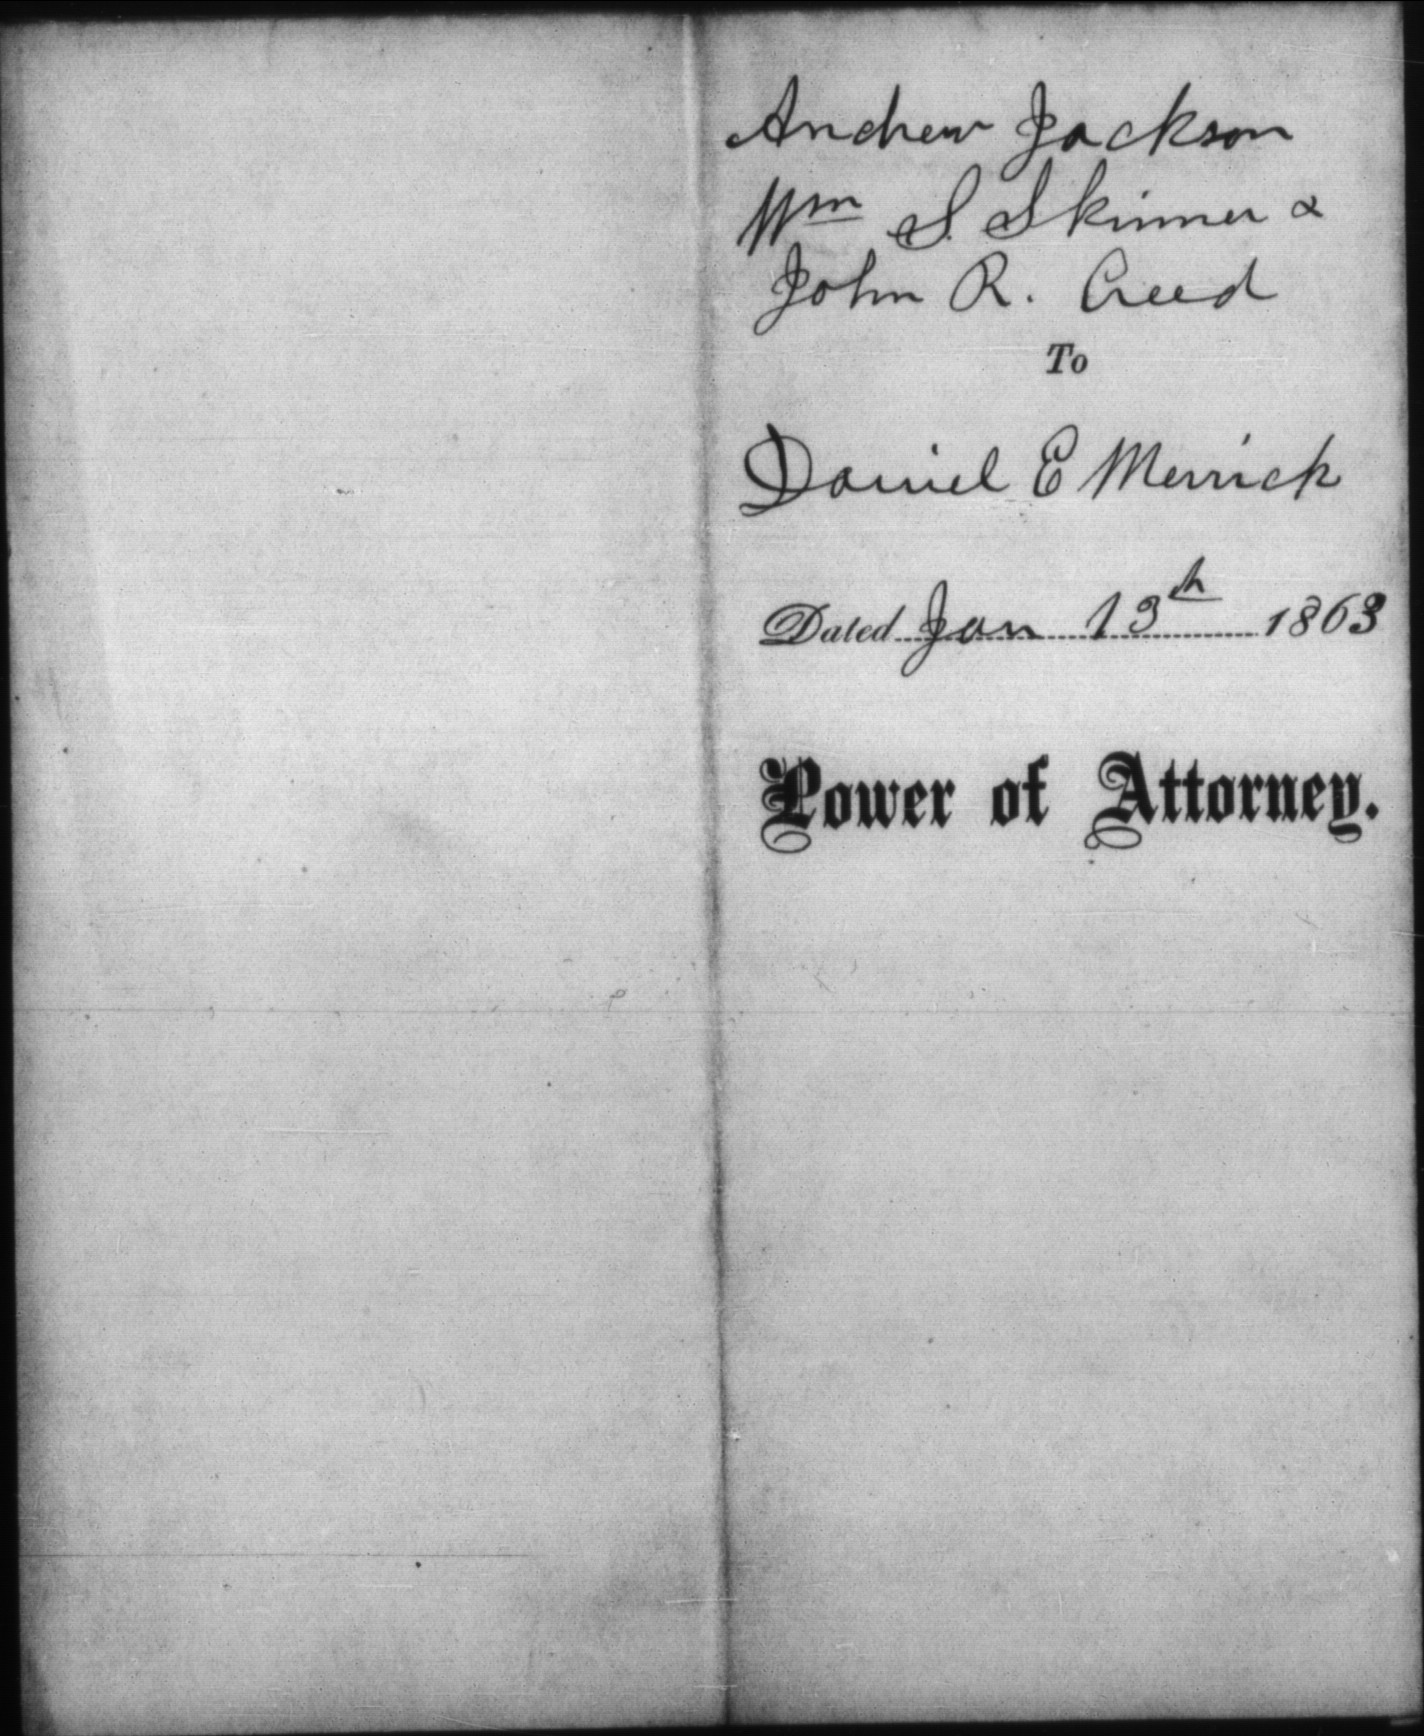 Andrew Jackson
Wm S. Skinner &
John R. Creed
To
Daniel E Merrick
Dated Jan 13th 1863
Power of Attorney.